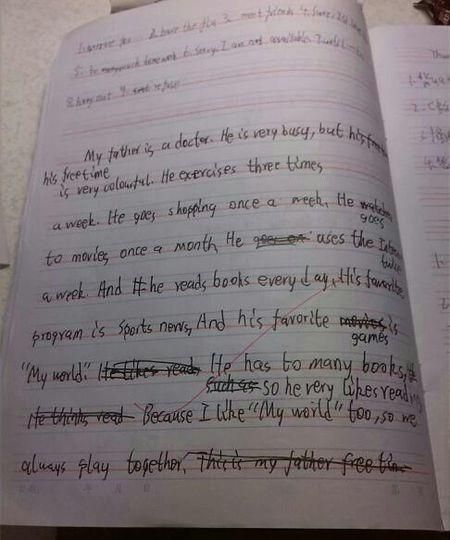 1. prepare for... 2. have the flu 3. meet friends 4.
5. too much homework 6. Sorry, I am not available. 7. until
8. hang out 9. refuse
My father is a doctor. He is very busy, but his free
his free time
is very colourful. He exercises three times
a week. He goes shopping once a week, He watches
goes
to movies once a month, He goes on uses the Internet
twice
a week. And he reads books every day, His favorite
program is sports news, And his favorite movies is
games
"My world". He likes read He has to many books,
such as so he very likes reading
He thinks read Because I like "My world" too, so we
always play together, This is my father free time
年 月 日